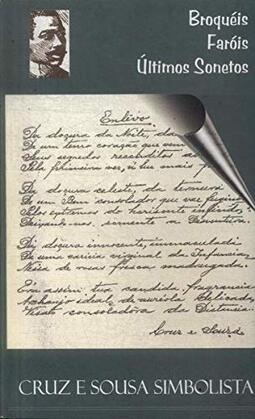 Broquéis
Faróis
Últimos Sonetos
Enlevo
Da doçura da Noite, da
De um tenro coração que vem
Seus segredos reconditos
Pela primeira vez, á luz mais
Da doçura celeste, da ternura
De um Bem consolador que vae fugindo
Pelos extremos do horizonte infindo,
Deixando-nos, somente a Desventura.
Da doçura innocente, immaculada
De uma caricia virginal da Infancia,
Nessa de rosas fresca madrugada.
Era assim tua candida fragrancia,
Archanjo ideal de auréola delicada,
Visão consoladora da Distancia...
Cruz e Souza
CRUZ E SOUSA SIMBOLISTA